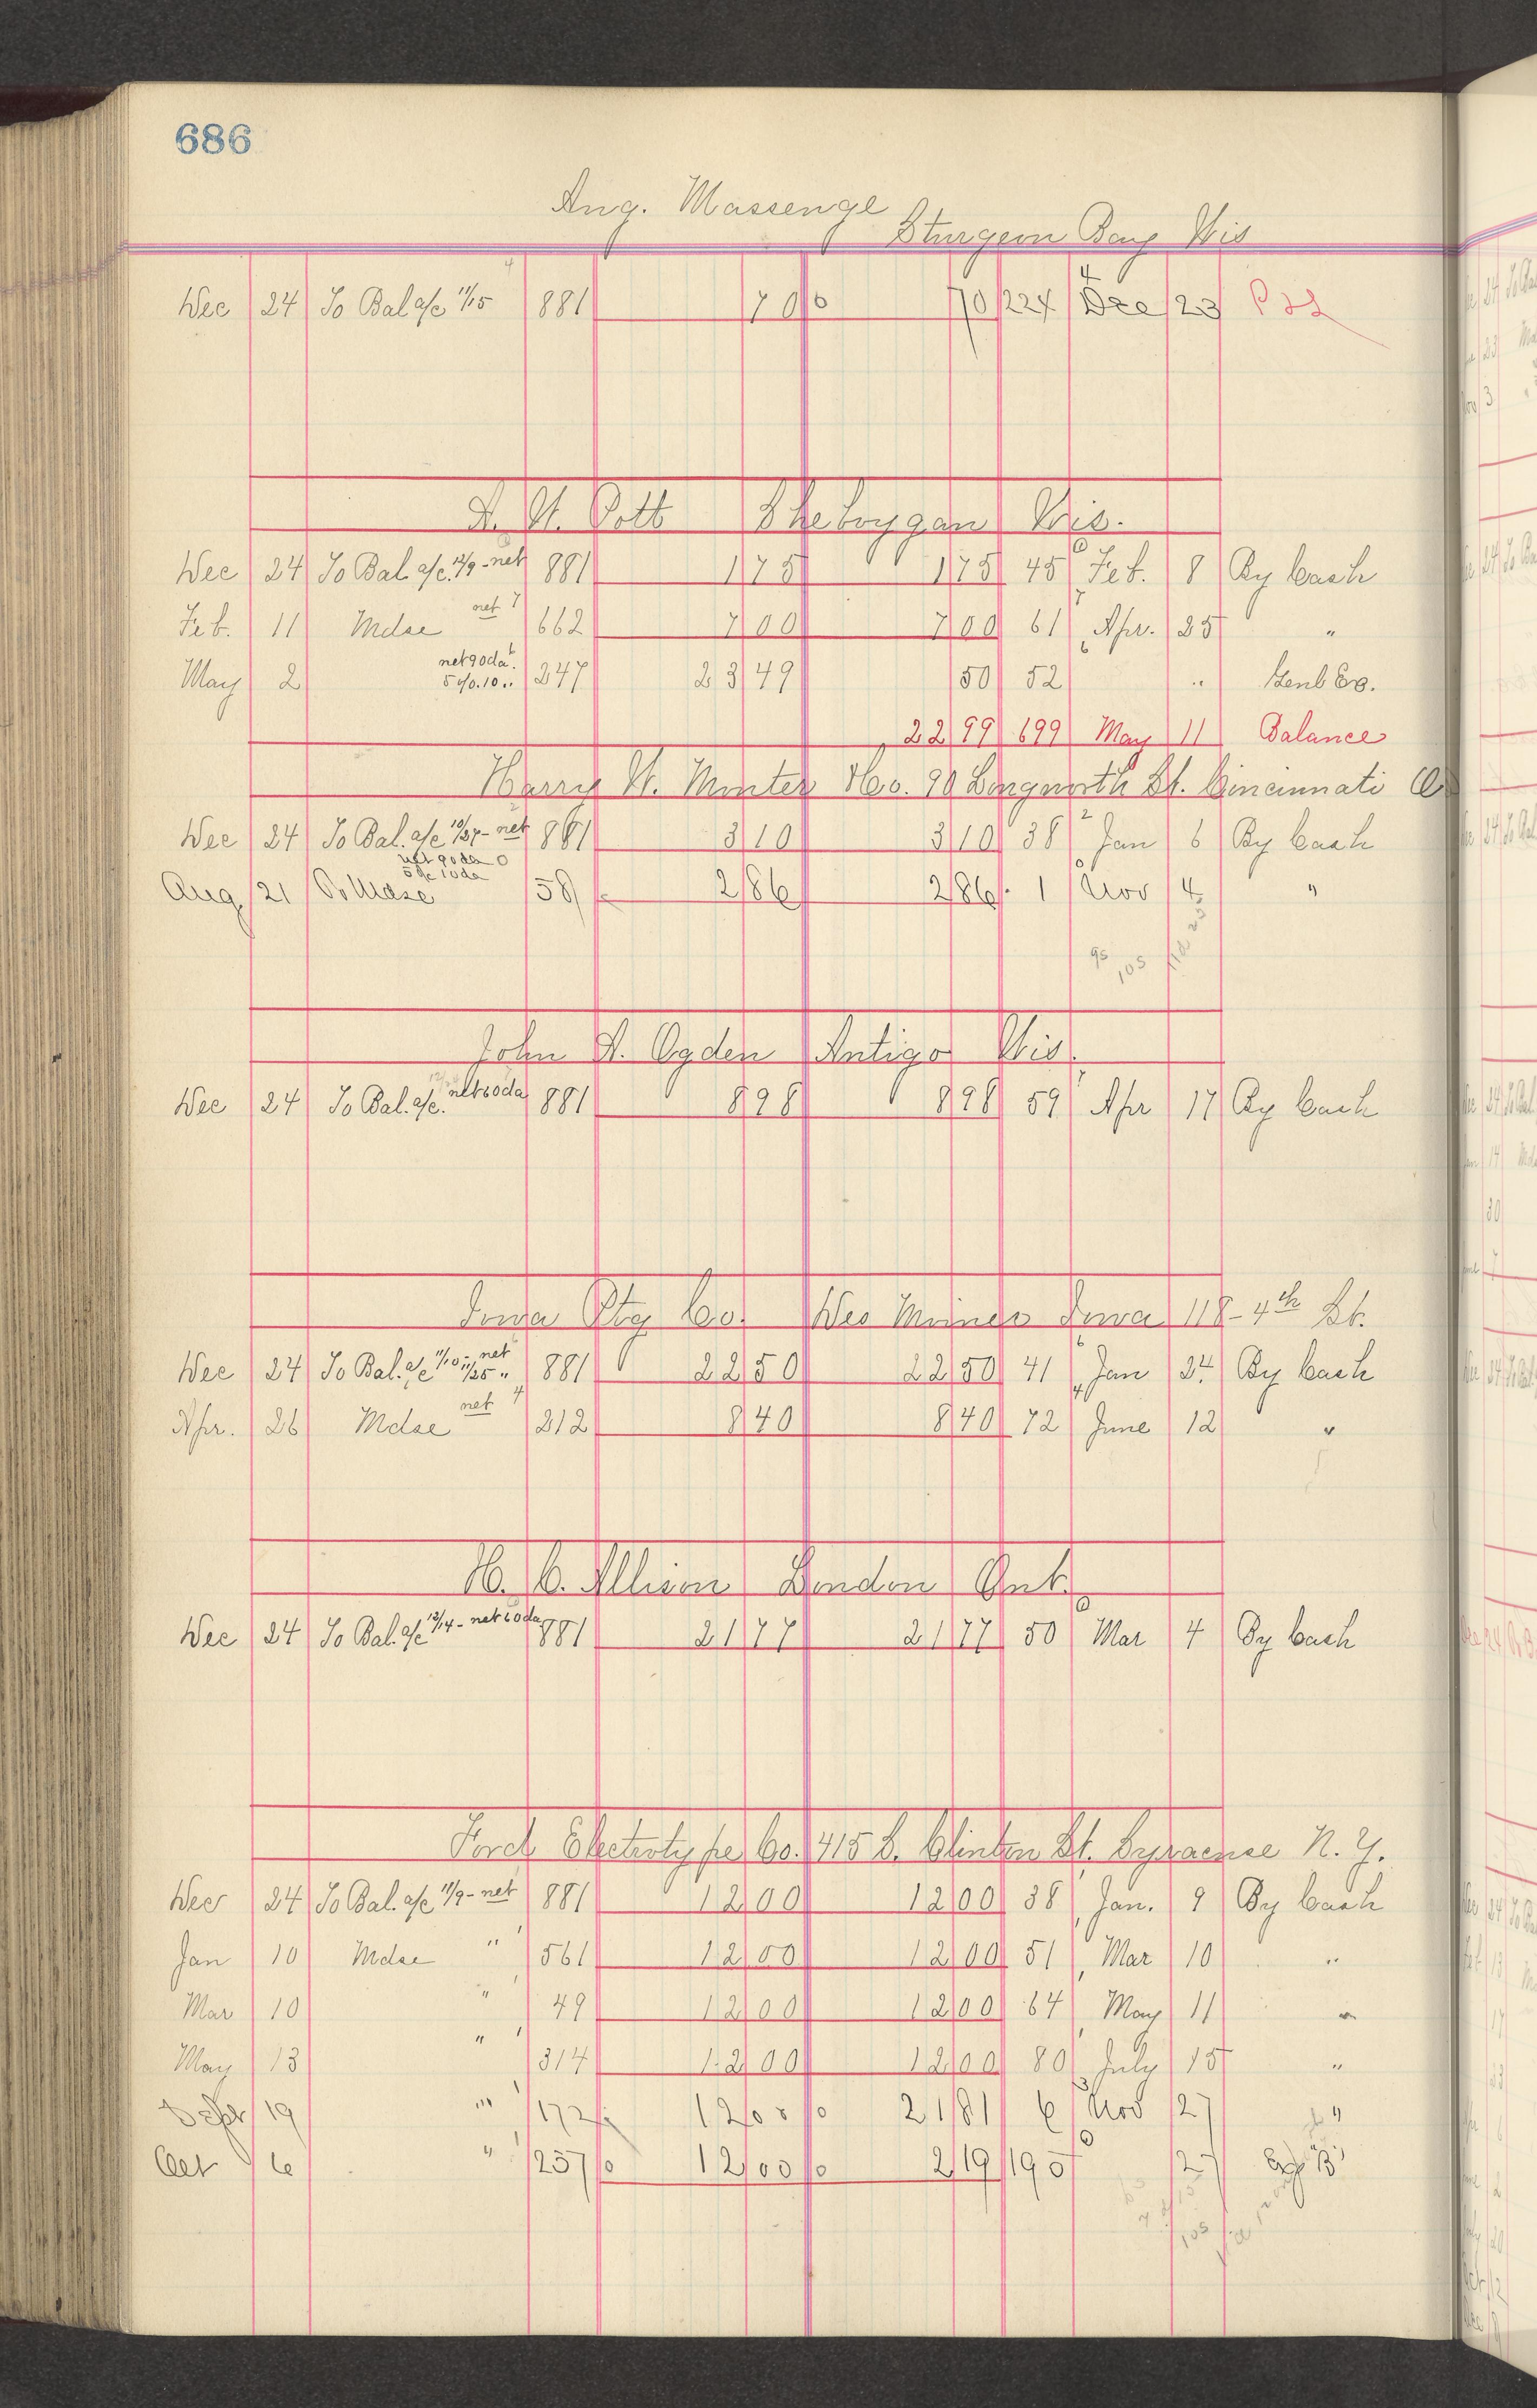 686
Aug. Massenge
Sturgeon Bay Wis
Dec 24 To Bal a/c 11/15 881 70 70 224 Dec 23 P & L
Sheboygan Wis.
Dec 24 To Bal. a/c 12/9 - net 881 1 75 1 75 45 Feb. 8 By Cash
Feb. 11 Mdse net 662 7 00 7 00 61 Apr. 25 "
May 2 net 90 da. 5 % 10 " 247 23 49 50 52 " Genl Ex.
22 99 699 May 11 Balance
Harry W. Minter No. 90 Longworth St. Cincinnati O
Dec 24 To Bal. a/c 10/27 - net 881 3 10 3 10 38 Jan 6 By Cash
net 90 da
5 % 10 da
Aug 21 To Mdse 58 2 86 2 86 1 Nov 4 "
95 105
John A. Ogden Antigo Wis.
Dec 24 To Bal. a/c. net 60 da 881 8 98 8 98 59 Apr 17 By Cash
Iowa Ptg Co. Des Moines Iowa 118 - 4th St.
Dec 24 To Bal. a/c 11/10 - net 11/25 " 881 22 50 22 50 41 Jan 24 By Cash
Apr. 26 Mdse net 212 8 40 8 40 72 June 12 "
H. C. Allison London Ont.
Dec 24 To Bal. a/c 12/14 - net 60 da 881 21 77 21 77 50 Mar 4 By Cash
Electrotype Co. 415 S. Clinton St. Syracuse N. Y.
Dec 24 To Bal. a/c 11/9 - net 881 12 00 12 00 38 Jan. 9 By Cash
Jan 10 Mdse " 561 12 00 12 00 51 Mar 10 "
Mar 10 " 49 12 00 12 00 64 May 11 "
May 13 " 314 12 00 12 00 80 July 15 "
Sept 19 " 172 12 00 21 81 6 Nov 27 "
Oct 6 " 257 12 00 2 19 195 27